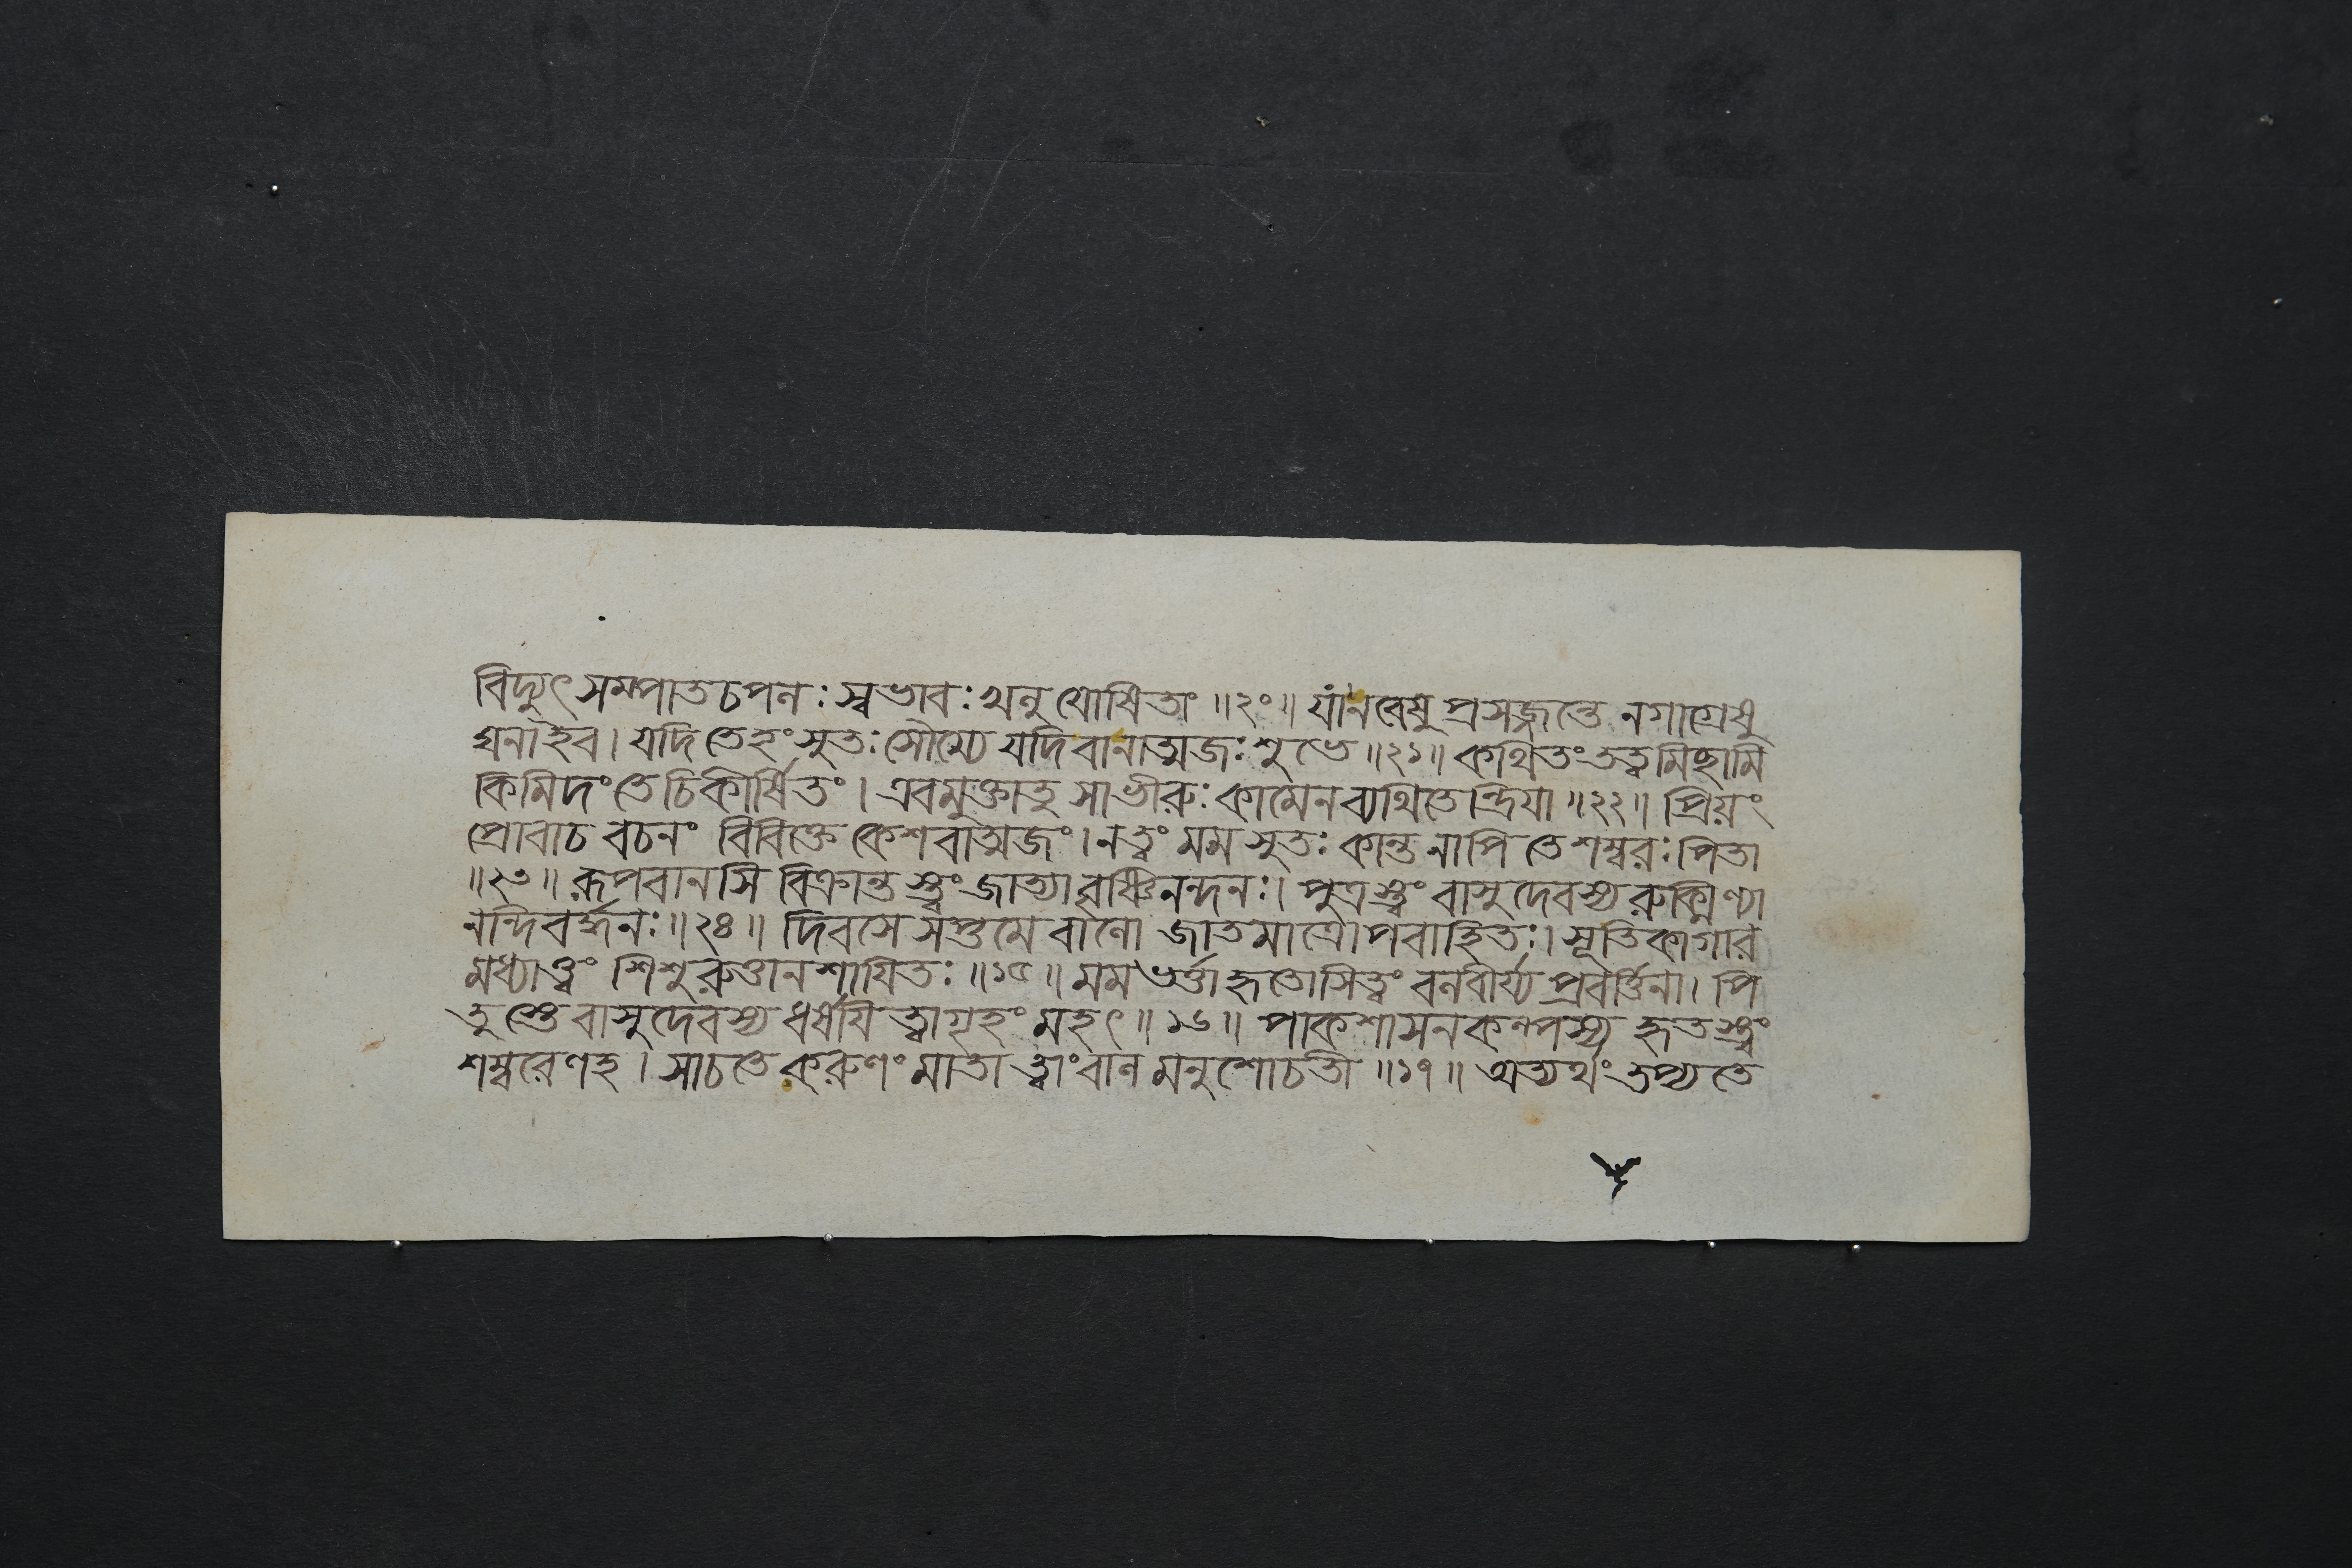 বিদ্যুৎসম্পাতচপনঃ স্বভাবঃ খনু যোষিতাং ॥২০॥ যাঁনরেষু প্রসজ্জন্তে নগাগ্রেষু
ঘনাইব। যদি তেহং সুতঃ সৌম্যে যদি বানাত্মজঃ শুভে ॥২১॥ কথিতং তত্ত্বমিছামি
কিমিদং তে চিকীর্ষিতং। এবমুক্তাতু সাভীরুঃ কামেন ব্যথিতেন্দ্রিয়া ॥২২॥ প্রিয়ং
প্রোবাচ বচনং বিবিক্তে কেশবাত্মজং। নত্বং মম সুতঃ কান্ত নাপি তে শম্বরঃ পিতা
॥২৩॥ রূপবানসি বিক্রান্তস্ত্বং জাত্যা বৃষ্ণিনন্দনঃ। পুত্রস্ত্বং বাসুদেবস্য রুক্মিণ্যা
নন্দিবর্দ্ধনঃ ॥২৪॥ দিবসে সপ্তমে বানো জাতমাত্রোপবাহিতঃ। সূতিকাগার
মধ্যাত্ত্বং শিশুরুত্তানশায়িতঃ ॥১৫॥ মম ভর্ত্তা হৃতোসিত্বং বনবীর্য্য প্রবর্ত্তিনা। পি
তুস্তে বাসুদেবস্য ধর্ষয়িত্বা গৃহং মহৎ ॥১৬॥ পাকশাসনকল্পস্য হৃতস্ত্বং
শম্বরেণহ। সাচতে করুণং মাতা ত্বাং বানমনুশোচতী ॥১৭॥ অত্যর্থং তপ্যতে